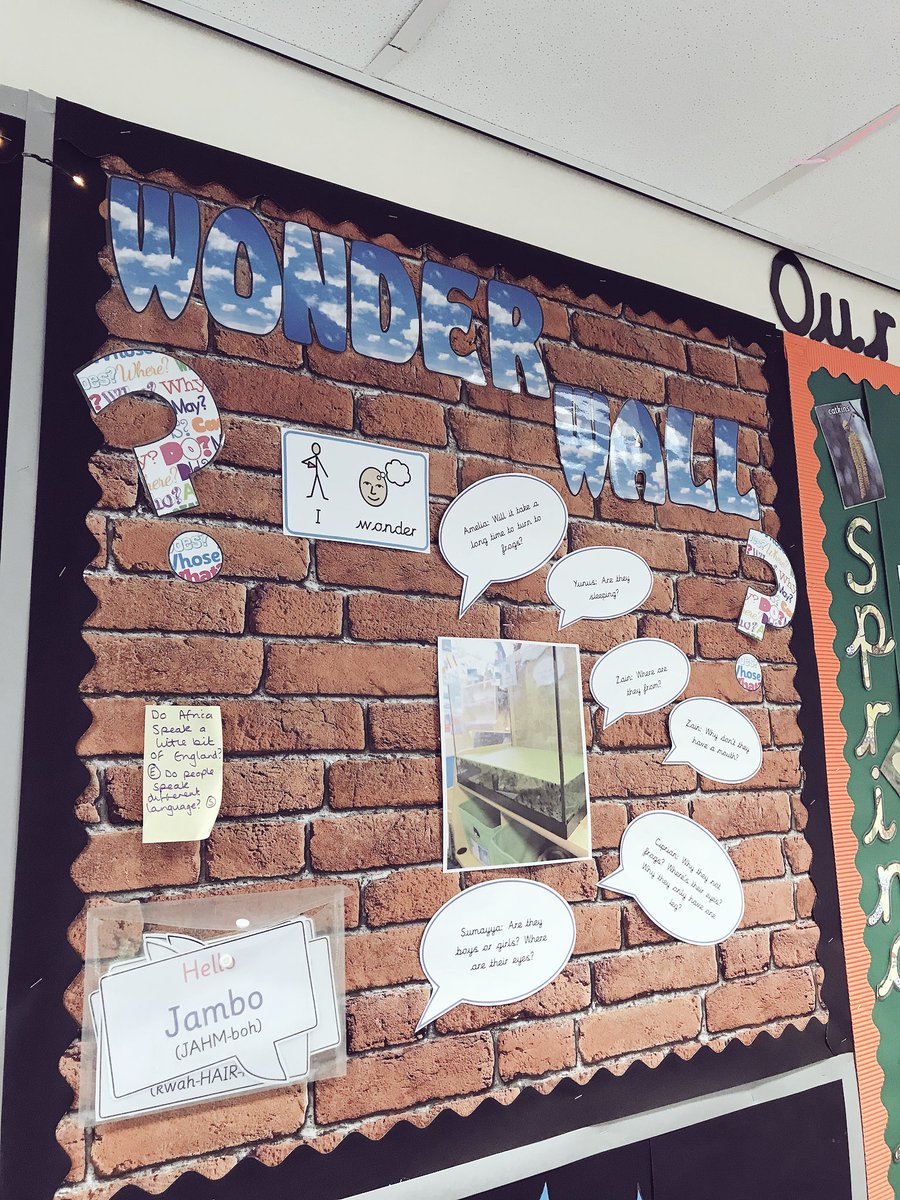 WONDER
WALL
Our
I wonder
Amelia: Will it take a
long time to turn to
frogs?
Yunus: Are they
sleeping?
Zain: Where are
they from?
Zain: Why don't they
have a mouth?
Ciprian: Why they not
frogs? Where's their eyes?
Why they only have one
leg?
Sumayya: Are they
boys or girls? Where
are their eyes?
Do Africa
Speak a
little bit
of England?
Ⓔ Do people
speak
different
language? Ⓢ
Hello
Jambo
(JAHM-boh)
(RWah-HAIR-
Where?
Why
May?
DO?
whose
catkins
Spring